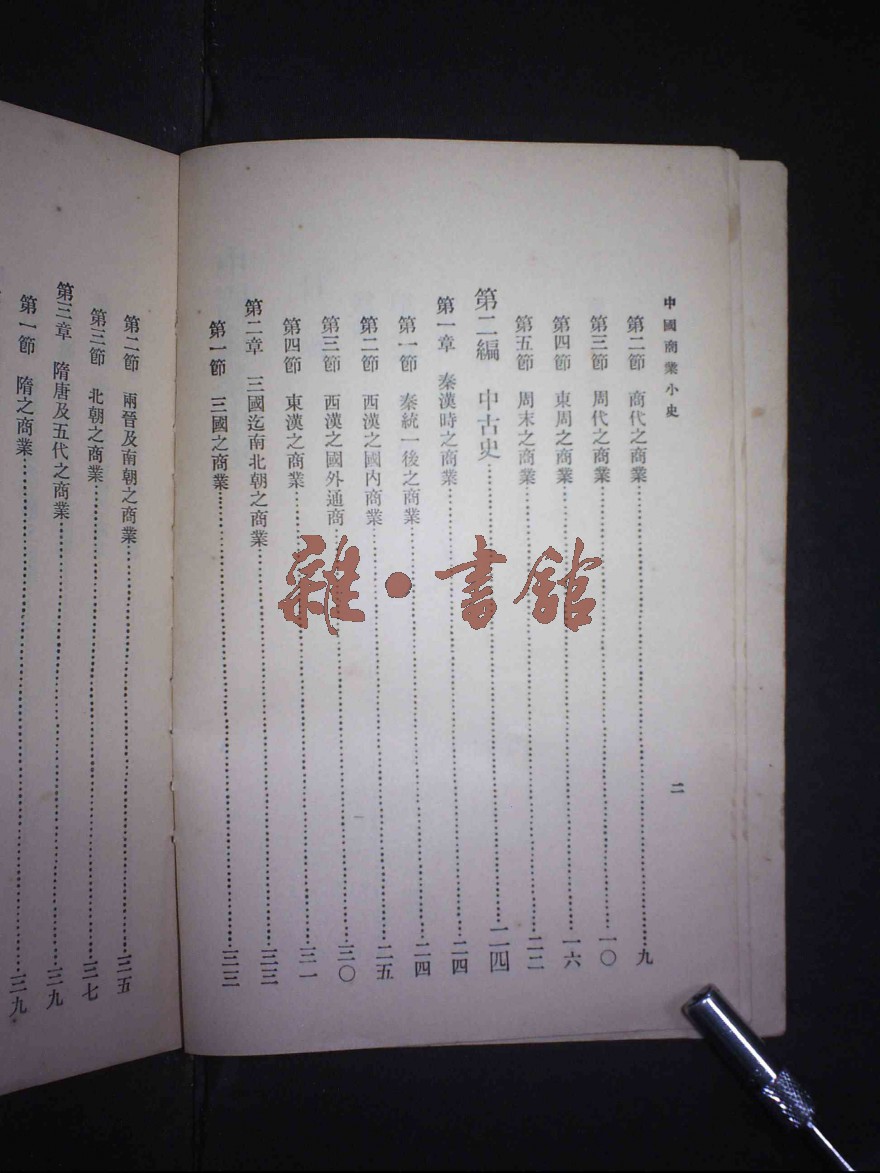 中國商業小史
二
第二節 商代之商業……九
第三節 周代之商業……一〇
第四節 東周之商業……一六
第五節 周末之商業……二二
第二編 中古史……二四
第一章 秦漢時之商業……二四
第一節 秦統一後之商業……二四
第二節 西漢之國內商業……二五
第三節 西漢之國外通商……三〇
第四節 東漢之商業……三一
第二章 三國迄南北朝之商業……三三
第一節 三國之商業……三三
第二節 兩晉及南朝之商業……三五
第三節 北朝之商業……三七
第三章 隋唐及五代之商業……三九
第一節 隋之商業……三九
雜·書館